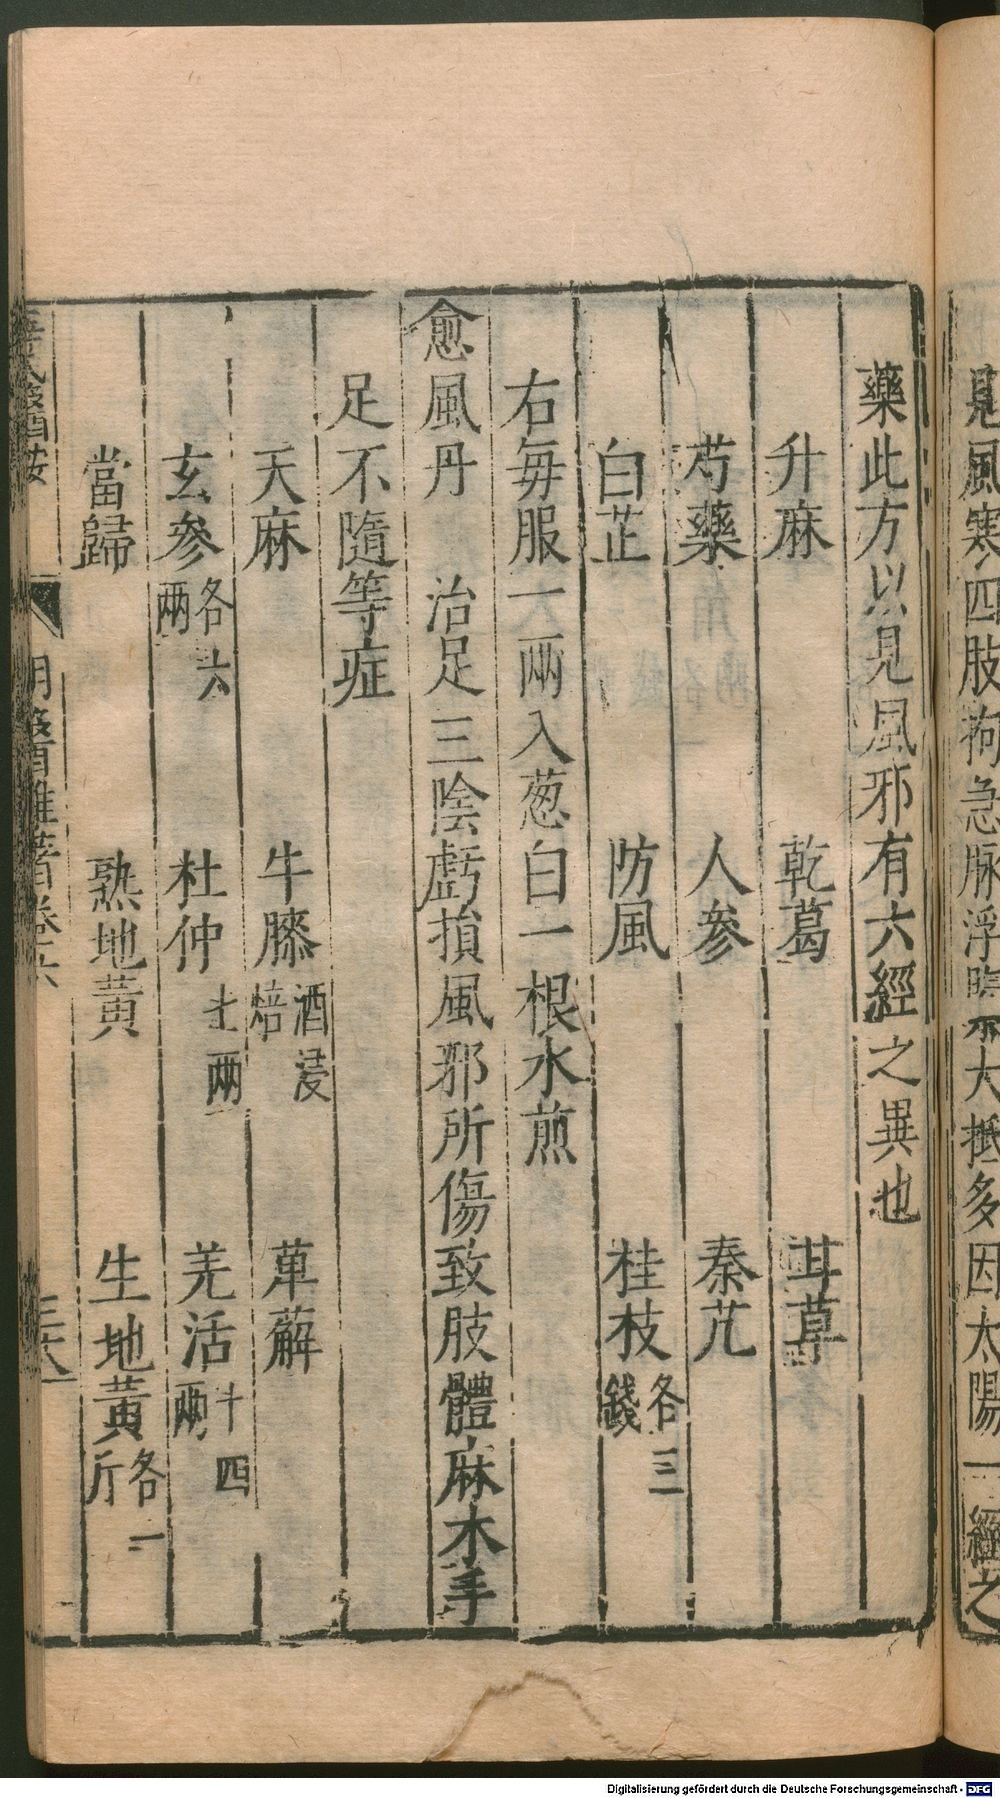 見風寒四肢拘急脉浮
大抵多因太陽一經之
藥此方以見風邪有六經之異也
升麻 乾葛 甘草
芍藥 人參 秦艽
白芷 防風 桂枝各三錢
右每服一兩入葱白一根水煎
愈風丹 治足三陰虧損風邪所傷致肢體麻木手
足不隨等症
天麻 牛膝酒浸焙 萆薢
玄參各六兩 杜仲七兩 羌活十四兩
當歸 熟地黃 生地黃各一斤
薛氏醫按 明醫雜著卷六
Digitalisierung gefördert durch die Deutsche Forschungsgemeinschaft - DFG